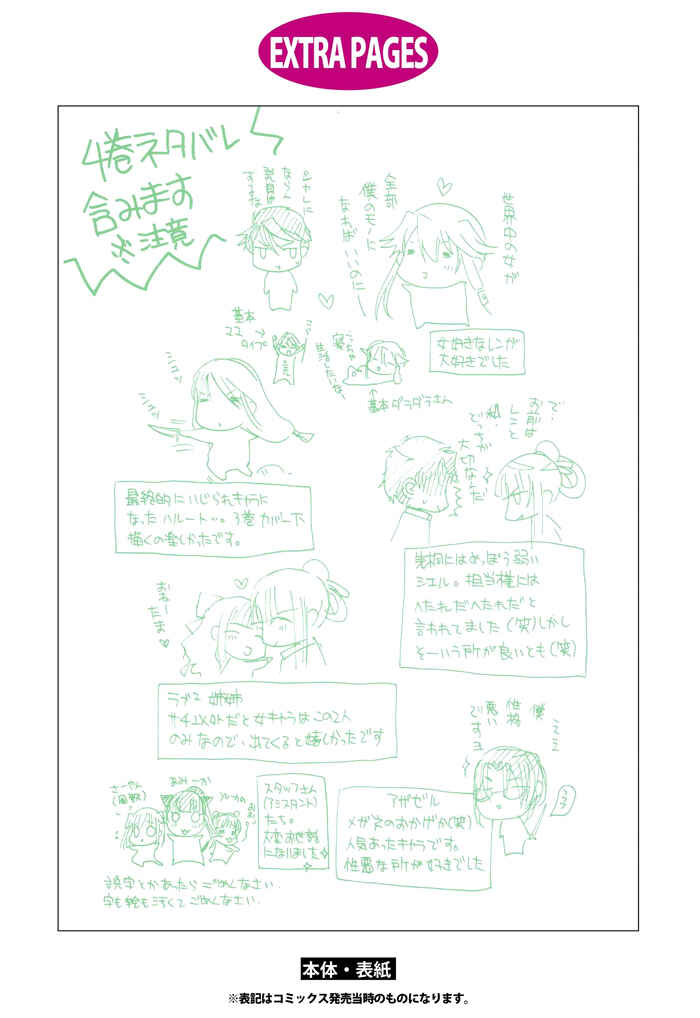 EXTRA PAGES
4巻ネタバレ
含みます
※注意
世界中の女が
全部
僕のモノに
なればいいのにー
シャレに
ならん
発言は
基本
ココ→
タイプ
↑
基本ダラダラさん
女好きなレンが
大好きでした
最終的にいじられキャラに
なったハルート…。3巻カバー下
描くの楽しかったです。
で、
お前は
レンと
私、
どっちが
大切なんだ
先桐にはめっぽう弱い
シエル。担当様には
へたれだへたれだと
言われてました(笑)しかし
そーいう所が良いとも(笑)
おねー
たま♡
ラブラブ姉妹
女キャラはこの2人
のみなので、出てくると嬉しかったです
僕
性格
悪い
ですヨ
アザゼル
メガネのおかげか(笑)
人気あったキャラです。
性悪な所が好きでした
さーやん
あみーが
スタッフさん
(アシスタント)
たち。
大変お世話
になりました
誤字とかあったらごめんなさい.
字も絵も汚くてごめんなさい.
本体・表紙
※表記はコミックス発売当時のものになります。